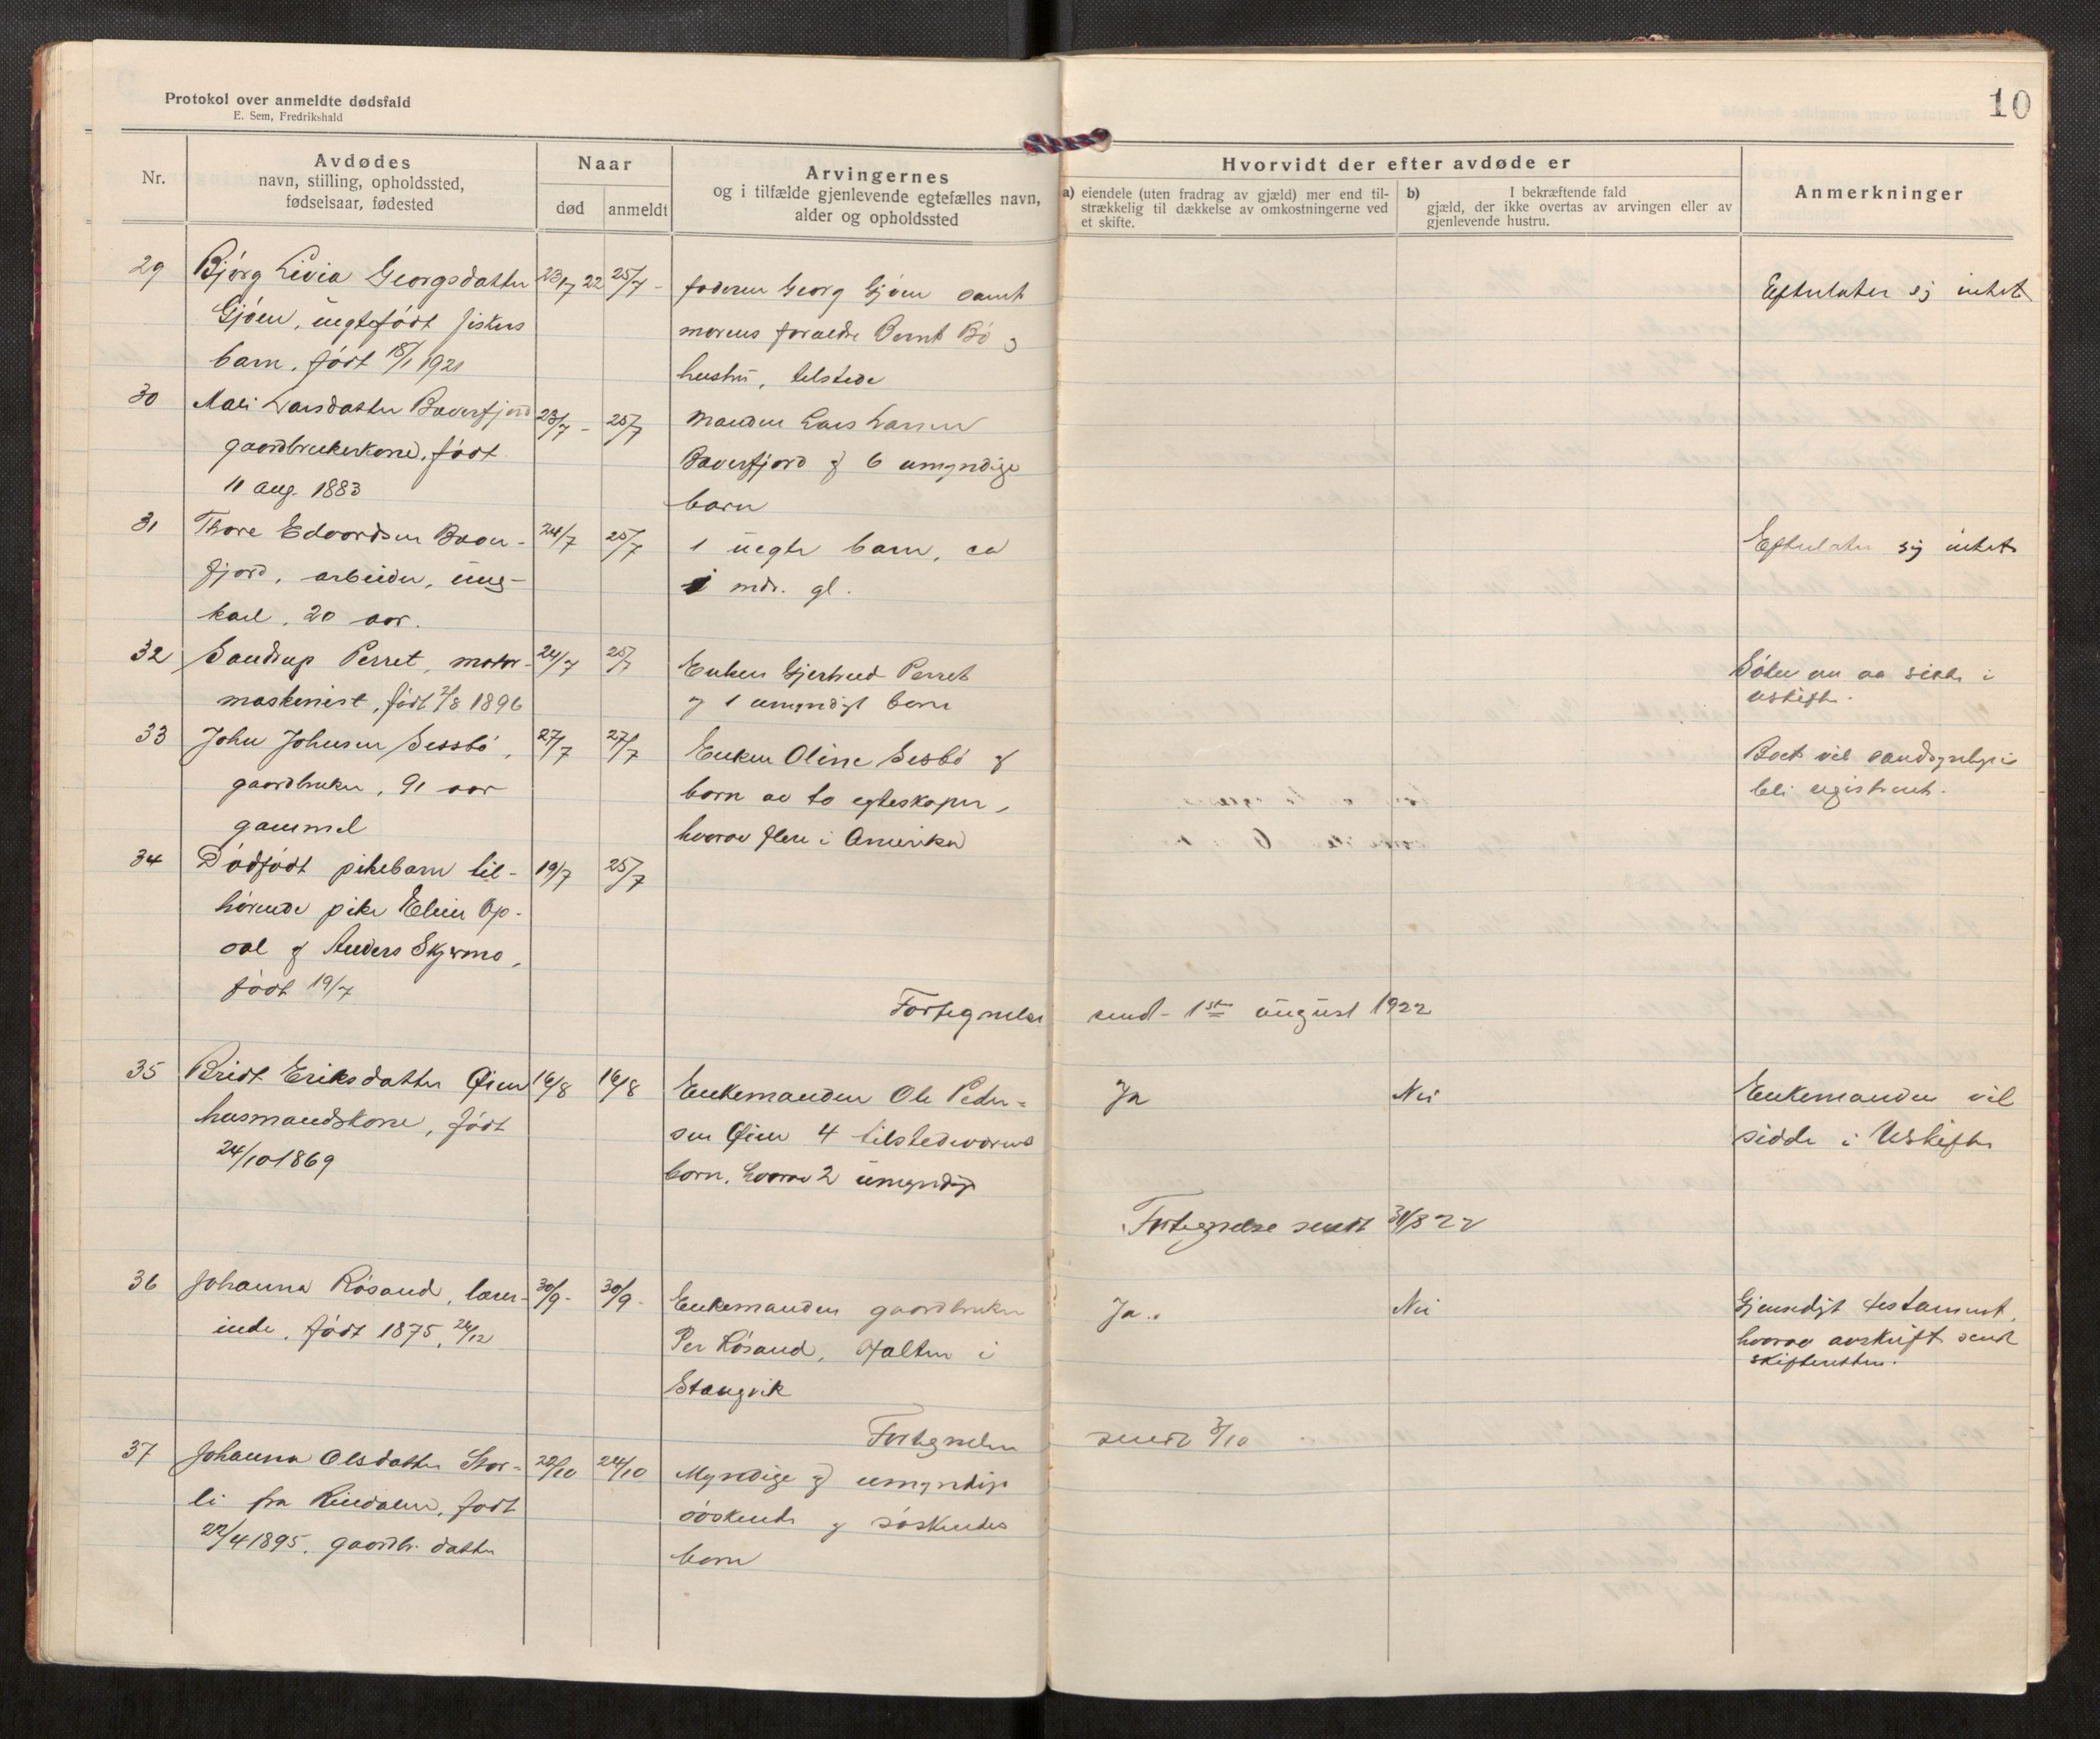 Protokol over anmeldte dødsfald
E. Sem, Fredrikshald
10
Nr.
Avdødes
navn, stilling, opholdssted,
fødselsaar, fødested
Naar
død
anmeldt
Arvingernes
og i tilfælde gjenlevende egtefælles navn,
alder og opholdssted
Hvorvidt der efter avdøde er
a) eiendele (uten fradrag av gjæld) mer end til-
strækkelig til dækkelse av omkostningerne ved
et skifte.
b) I bekræftende fald
gjæld, der ikke overtas av arvingen eller av
gjenlevende hustru.
Anmerkninger
29 Bjørg Livia Georgsdatter 23/7 22 25/7 -
Gjøen, uegtefødt fiskers
barn, født 18/1 1921
faderen Georg Gjøen samt
morens foraldre Bernt Bö og
hustru, tilstede
Efterlater sig intet
30 Mali Larsdatter Bøverfjord 23/7 - 25/7
gaardbrukerkone, født
11 aug. 1883
Manden Lars Larsen
Bøverfjord og 6 umyndige
barn
31 Thore Edvardsen Bøver- 24/7 25/7
fjord, arbeider, ung-
karl, 20 aar.
1 uegte barn, ca
mdr. gl.
Efterlater sig intet
32 Sandrup Perret, motor- 24/7 25/7
maskinist, født 2/8 1896
Enken Gjertrud Perret
og 1 umyndigt barn
Söker om aa sitte i
uskifte.
33 John Johnsen Sessbö, 27/7 27/7
gaardbruker, 91 aar
gammel
Enken Oline Sesbö og
barn av to egteskaper,
hvorav flere i Amerika
Boet vil sandsynligvis
bli registrert.
34 Dødfødt pikebarn til- 19/7 25/7
hörende pike Elen Op-
dal og Anders Skjermo,
født 19/7
Fortegnelse sendt 1ste august 1922
35 Bridt Eriksdatter Øien 16/8 16/8
husmandskone, født
24/10 1869
Enkemanden Ole Peder-
sen Øien 4 tilstedeværende
børn, hvorav 2 umyndige
Ja
Nei
Enkemanden vil
sidde i Uskifte
Fortegnelse sendt 31/8 22
36 Johanna Rösand, lærer- 30/9 - 30/9 -
inde, født 1875, 24/12
Enkemanden gaardbruker
Per Rösand, Halten i
Stangvik
Ja.
Nei
Gjensidigt testament,
hvorav avskrift sendt
skifteretten.
Fortegnelse sendt 3/10
37 Johanna Olsdatter Stor- 22/10 24/10
li fra Rindalen, født
22/4 1895, gaardbr. datter
Myndige og umyndige
søskende og søskendes
barn